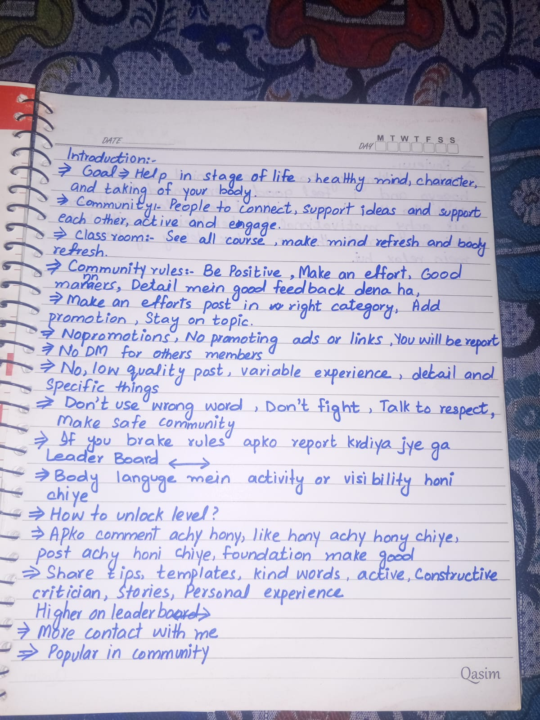 DATE
DAY
M T W T F S S
Introduction:-
⇒ Goal ⇒ Help in stage of life, healthy mind, character,
and taking of your body.
⇒ Community:- People to connect, support ideas and support
each other, active and engage.
⇒ Class room:- See all course, make mind refresh and body
refresh.
⇒ Community rules:- Be Positive, Make an effort, Good
manners, Detail mein good feedback dena ha,
⇒ Make an efforts post in right category, Add
promotion, Stay on topic.
⇒ Nopromotions, No promoting ads or links, You will be report
⇒ No DM for others members
⇒ No, low quality post, variable experience, detail and
Specific things
⇒ Don't use wrong word, Don't fight, Talk to respect,
Make safe community
⇒ If you brake rules apko report krdiya jye ga
Leader Board ↔
⇒ Body languge mein activity or visibility honi
chiye
⇒ How to unlock level?
⇒ Apko comment achy hony, like hony achy hony chiye,
post achy honi chiye, foundation make good
⇒ Share tips, templates, kind words, active, Constructive
critician, Stories, Personal experience
Higher on leaderboard
⇒ More contact with me
⇒ Popular in community
Qasim